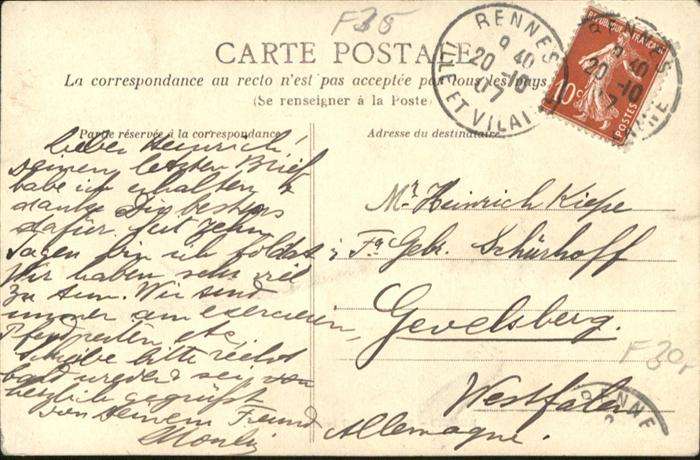 F 35
CARTE POSTALE
La correspondance au recto n'est pas acceptée par tous les pays
(Se renseigner à la Poste)
RENNES
9 40
20 -10
07
ILLE ET VILAINE
REPUBLIQUE FRANÇAISE
10c
POSTES
9 40
20 -10
Partie réservée à la correspondance
Adresse du destinataire
Lieber Heinrich!
Deinen letzten Brief
habe ich erhalten &
danke Dir bestens
dafür. Seit zehn
Tagen bin ich Soldat
Wir haben sehr viel
zu tun. Wir sind
immer am exercieren,
Pferdreiten, etc.
Schreibe bitte recht
bald wieder & sei von
herzlich gegrüßt
von Deinem Freund
Mr. Heinrich Kiepe
Fa Gebr. Schürhoff
Gevelsberg.
Westfalen
Allemagne.
F 30r
RENNE